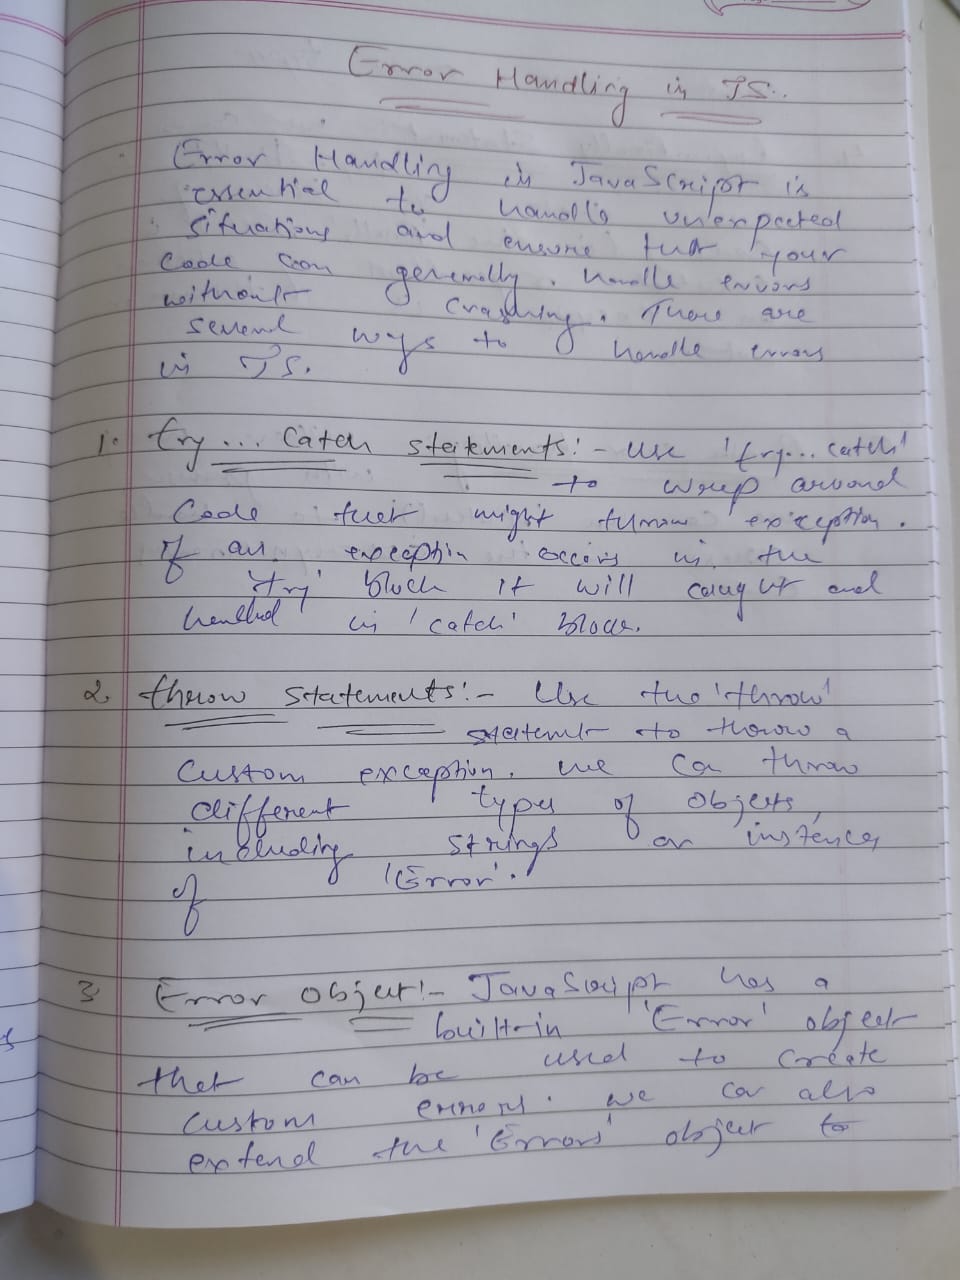 Error Handling in JS.
Error Handling in JavaScript is
essential to handle unexpected
situations and ensure that your
Code can generally. handle errors
without crashing. There are
several ways to handle errors
in JS.
1. try... Catch statements:- use 'try... catch'
to wrap around
Code that might throw exception.
If an exception occurs in the
'try' block it will caught and
handled in 'catch' block.
2. throw statements:- Use the 'throw'
statement to throw a
Custom exception. we can throw
different types of objects,
including strings or instances
of 'Error'.
3 Error object:- JavaScript has a
built-in 'Error' object
that can be used to create
custom errors. we can also
extend the 'Errors' object to